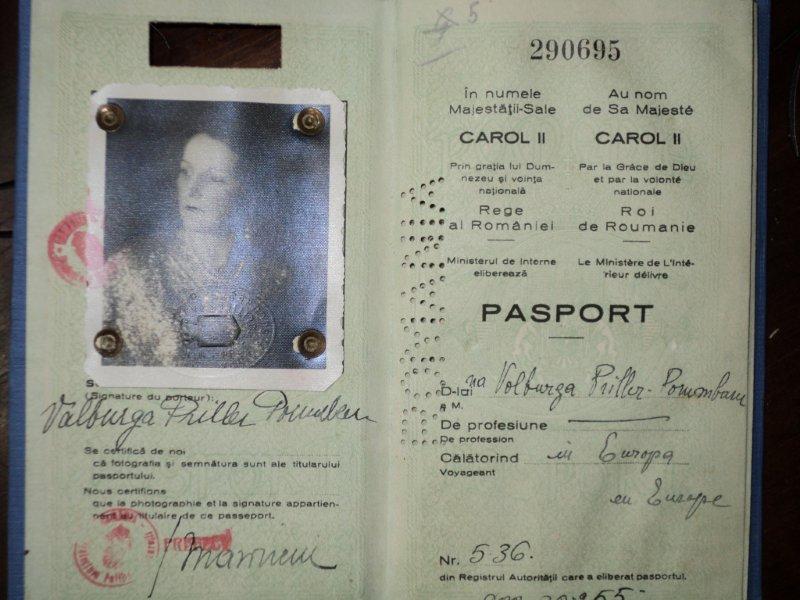 (Signature du porteur):
Valburga Priller
Se certifică de noi
că fotografia și semnătura sunt ale titularului
pașaportului.
Nous certifions
que la photographie et la signature appartien-
nent au titulaire de ce passeport.
PREFECT
5
290695
În numele
Majestății-Sale
CAROL II
Prin grația lui Dum-
nezeu și voința
națională
Rege
al României
Ministerul de Interne
eliberează
Au nom
de Sa Majesté
CAROL II
Par la Grâce de Dieu
et par la volonté
nationale
Roi
de Roumanie
Le Ministère de L'Inté-
rieur délivre
PASPORT
D-lui na Volburga Priller-
A M.
De profesiune
De profession
Călătorind in Europa
Voyageant
en Europe
Nr. 536.
din Registrul Autorității care a eliberat pasportul.